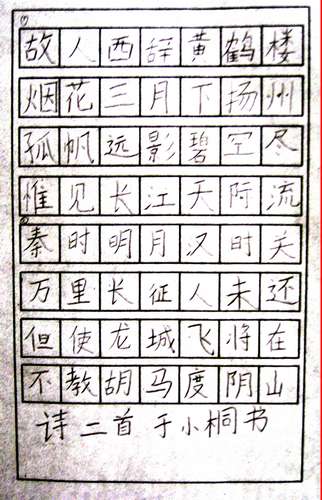 ①
故人西辞黄鹤楼
烟花三月下扬州
孤帆远影碧空尽
惟见长江天际流
②
秦时明月汉时关
万里长征人未还
但使龙城飞将在
不教胡马度阴山
诗二首 于小桐书